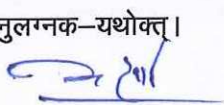 नुलग्नक–यथोक्त्।